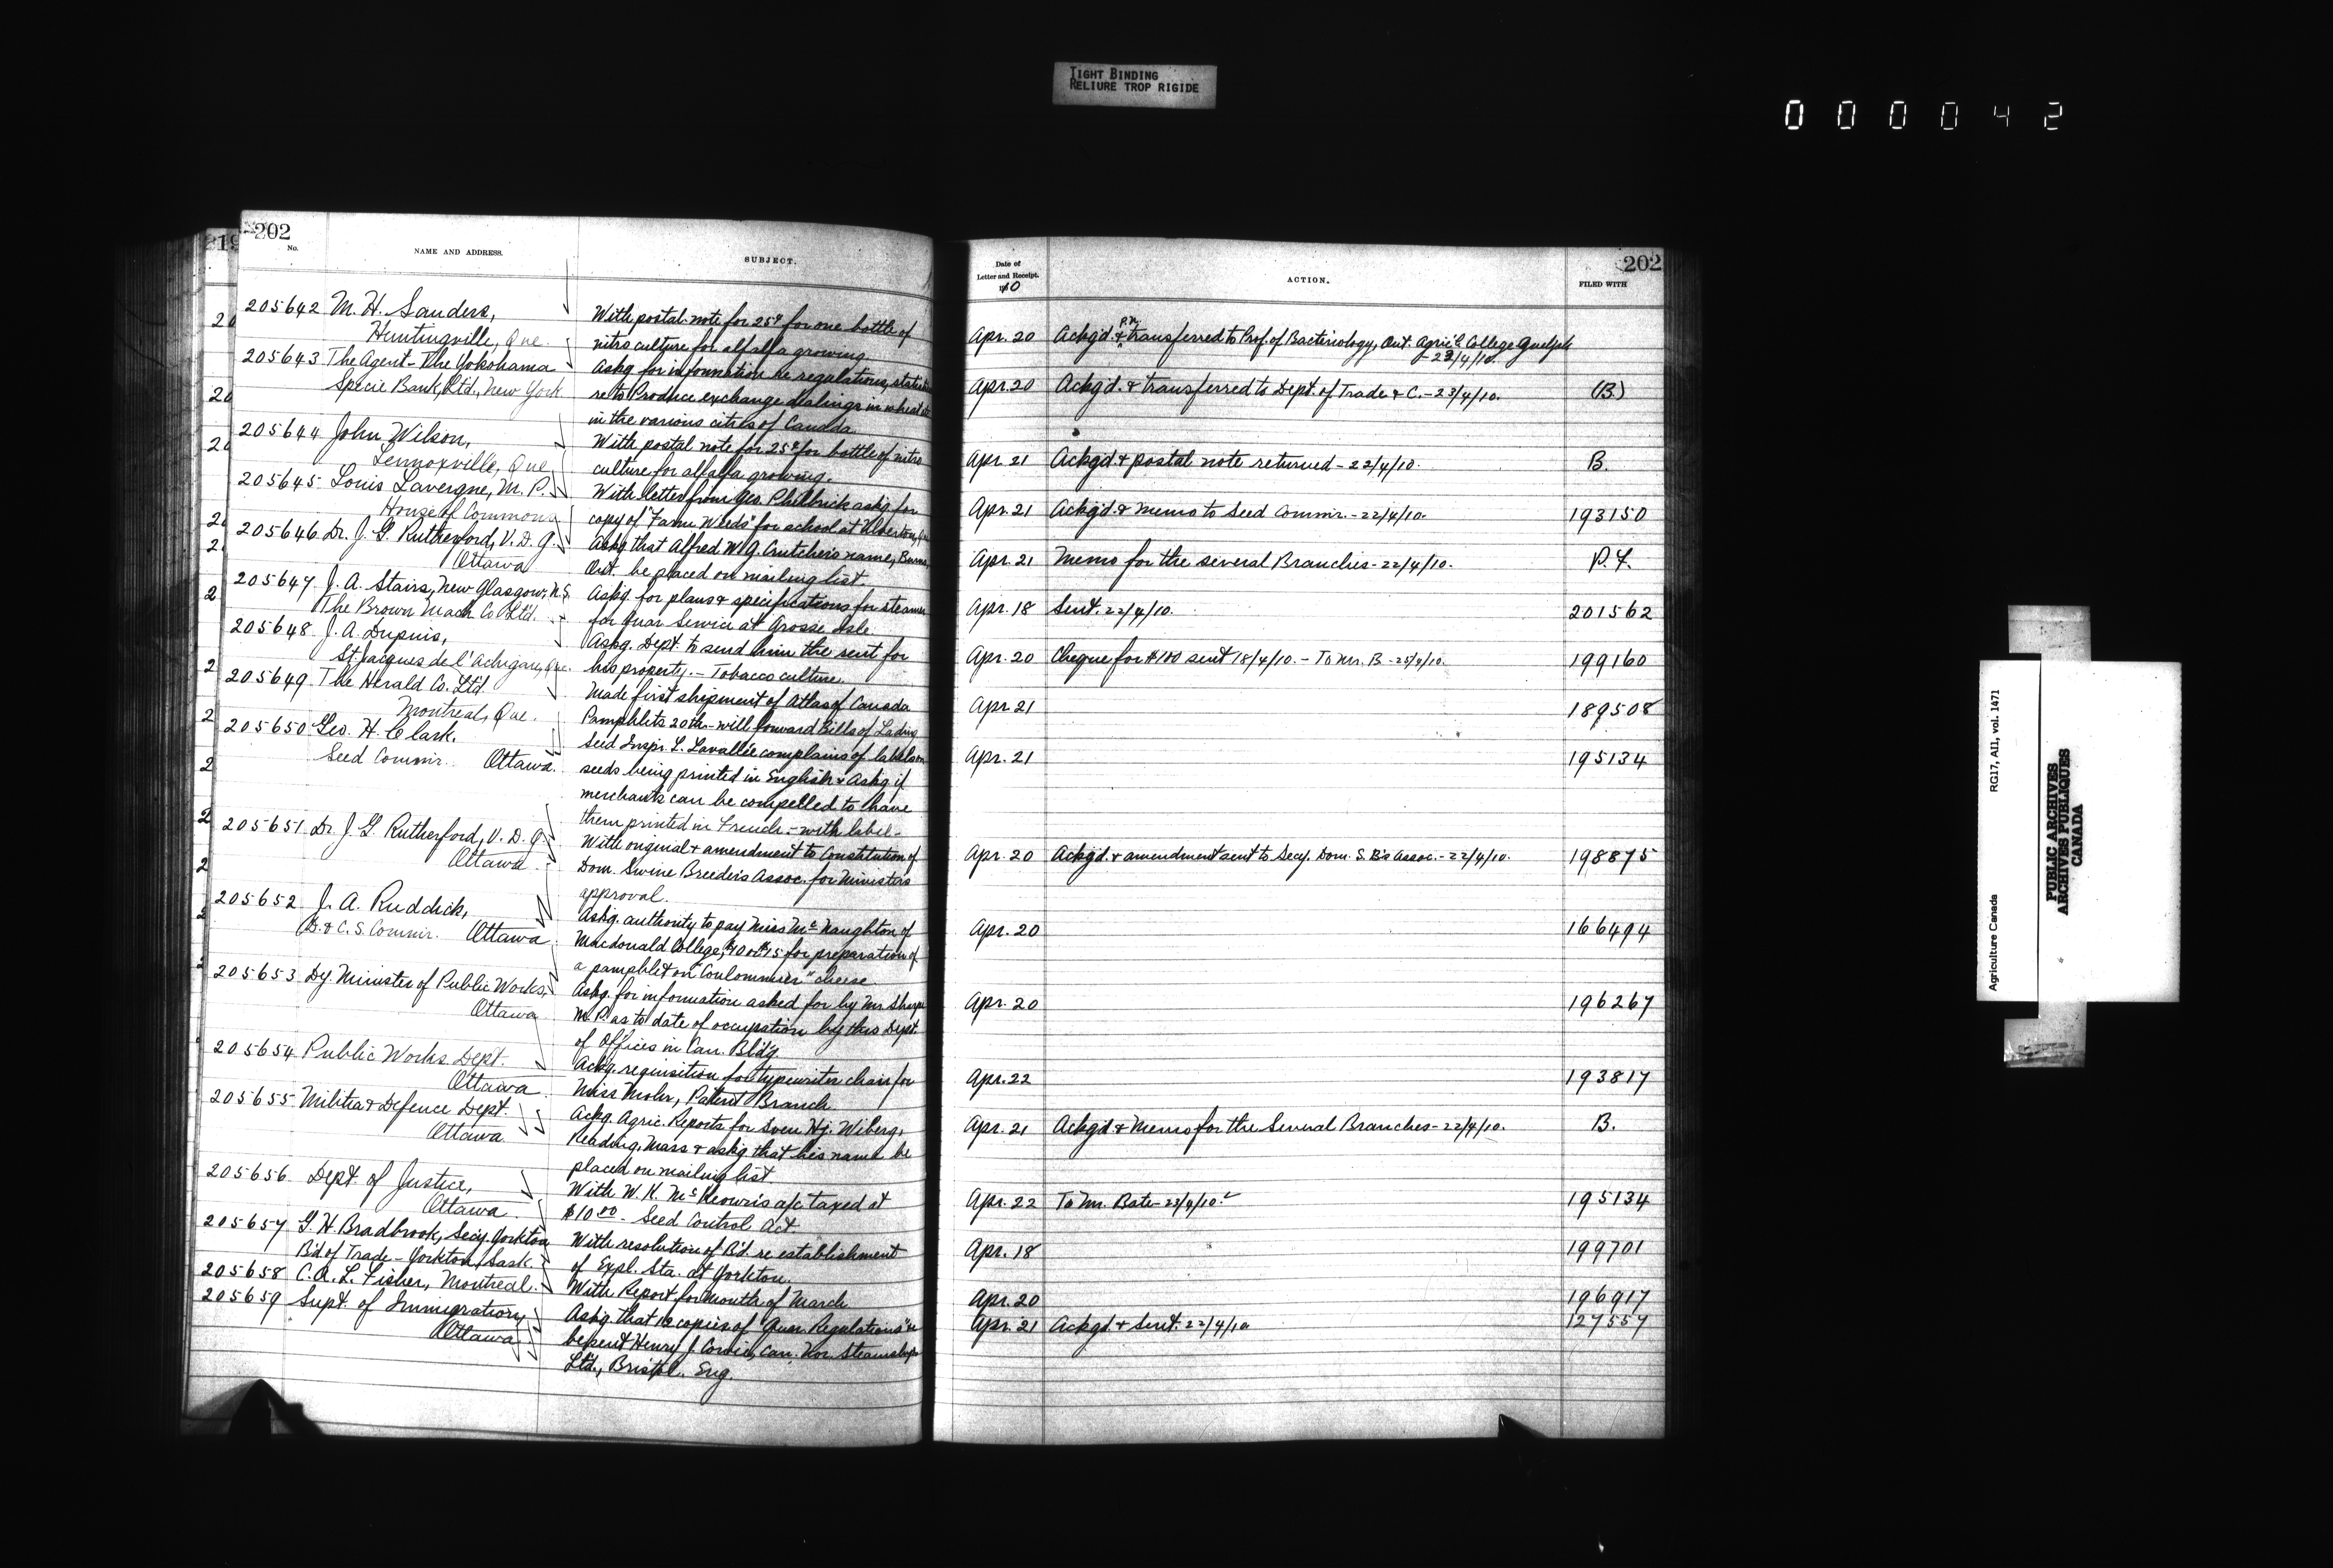 TIGHT BINDING
RELIURE TROP RIGIDE
000042
219
202
No.
NAME AND ADDRESS.
SUBJECT.
205642 M. H. Sanders,
Huntingville, Que.
With postal note for 25¢ for one bottle of
nitro culture for alfalfa growing.
205643 The Agent - The Yokohama
Specie Bank, Ltd., New York
Askg for information re regulations,
re to Produce exchange dealings in wheat
in the various cities of Canada.
205644 John Wilson,
Lennoxville, Que.
With postal note for 25¢ for bottle of nitro
culture for alfalfa growing.
205645 Louis Lavergne, M. P.
House of Commons
With letter from Geo. Philbrick askg for
copy of "Farm Weeds" for school at
205646 Dr. J. G. Rutherford, V. D. G.
Ottawa
Askg that Alfred W. G. Crutcher's name,
Ont. be placed on mailing list.
205647 J. A. Stairs, New Glasgow, N.S.
The Brown Mach Co Ltd.
Askg for plans & specifications for steamer
for Quar Service at Grosse Isle.
205648 J. A. Dupuis,
St. Jacques de l'Achigan, Que.
Askg. Dept. to send him the rent for
his property. - Tobacco culture.
205649 The Herald Co. Ltd
Montreal, Que.
Made first shipment of Atlas of Canada
Pamphlets 20th - will forward Bills of Lading
205650 Geo. H. Clark,
Seed Commr. Ottawa.
Seed Inspr. L. Lavallée complains of labels on
seeds being printed in English & Askg if
merchants can be compelled to have
them printed in French. - with label -
205651 Dr. J. G. Rutherford, V. D. G.
Ottawa
With original & amendment to Constitution of
Dom. Swine Breeders Assoc. for Ministers
approval.
205652 J. A. Ruddick,
D. & C. S. Commr. Ottawa
Askg. authority to pay Miss McNaughton of
Macdonald College, $10 or $15 for preparation of
a pamphlet on "Coulommier" cheese.
205653 Dy. Minister of Public Works,
Ottawa
Askg. for information asked for by Mr. Sharpe
M.P. as to date of occupation by this Dept.
of Offices in Can. Bldg.
205654 Public Works Dept.
Ottawa
Ackg. requisition for typewriter chair for
Miss Mohr, Patent Branch
205655 Militia & Defence Dept.
Ottawa
Ackg. Agric. Reports for Sven Hj. Wiberg,
Reading, Mass & askg that his name be
placed on mailing list.
205656 Dept. of Justice,
Ottawa
With W. K. McKeown's a/c taxed at
$10.00 - Seed Control Act.
205657 G. H. Bradbrook, Secy. Yorkton
B'd of Trade - Yorkton, Sask.
With resolution of B'd. re establishment
of Expl. Sta. at Yorkton.
205658 C. A. L. Fisher, Montreal.
With Report for Month of March
205659 Supt. of Immigration,
Ottawa
Askg. that 10 copies of "Quar. Regulations"
be sent Henry J. Can. Nor. Steamships
Ltd., Bristol. Eng.
Date of
Letter and Receipt.
10
ACTION.
202
FILED WITH
Apr. 20 Ackgd. & P.N. transferred to Prof. of Bacteriology, Ont. Agric'l College Guelph
-23/4/10.
Apr. 20 Ackgd. & transferred to Dept. of Trade & C. - 23/4/10. (B.)
Apr. 21 Ackgd & postal note returned - 22/4/10. B.
Apr. 21 Ackgd. & Memo to Seed Commr. - 22/4/10. 193150
Apr. 21 Memo for the several Branches - 22/4/10. P.F.
Apr. 18 Sent. 22/4/10. 201562
Apr. 20 Cheque for $100 sent 18/4/10. - To Mr. B - 25/4/10. 199160
Apr. 21 189508
Apr. 21 195134
Apr. 20 Ackgd. & amendment sent to Secy. Dom. S. B's Assoc. - 22/4/10. 198875
Apr. 20 166494
Apr. 20 196267
Apr. 22 193817
Apr. 21 Ackgd & Memo for the Several Branches - 22/4/10. B.
Apr. 22 To Mr. Bate - 23/4/10. 195134
Apr. 18 199701
Apr. 20 196917
Apr. 21 Ackgd. & Sent. 22/4/10 127557
Agriculture Canada RG17, AII, vol. 1471
PUBLIC ARCHIVES
ARCHIVES PUBLIQUES
CANADA